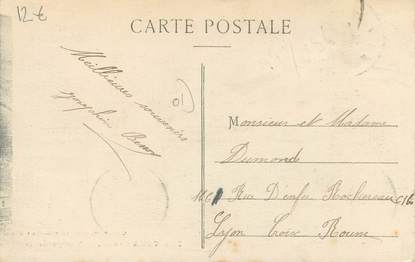 12-€
CARTE POSTALE
Meilleures souvenirs
01
Monsieur et Madame
Dumond
Rue D'enfer Rochereau
Lyon Croix Rousse